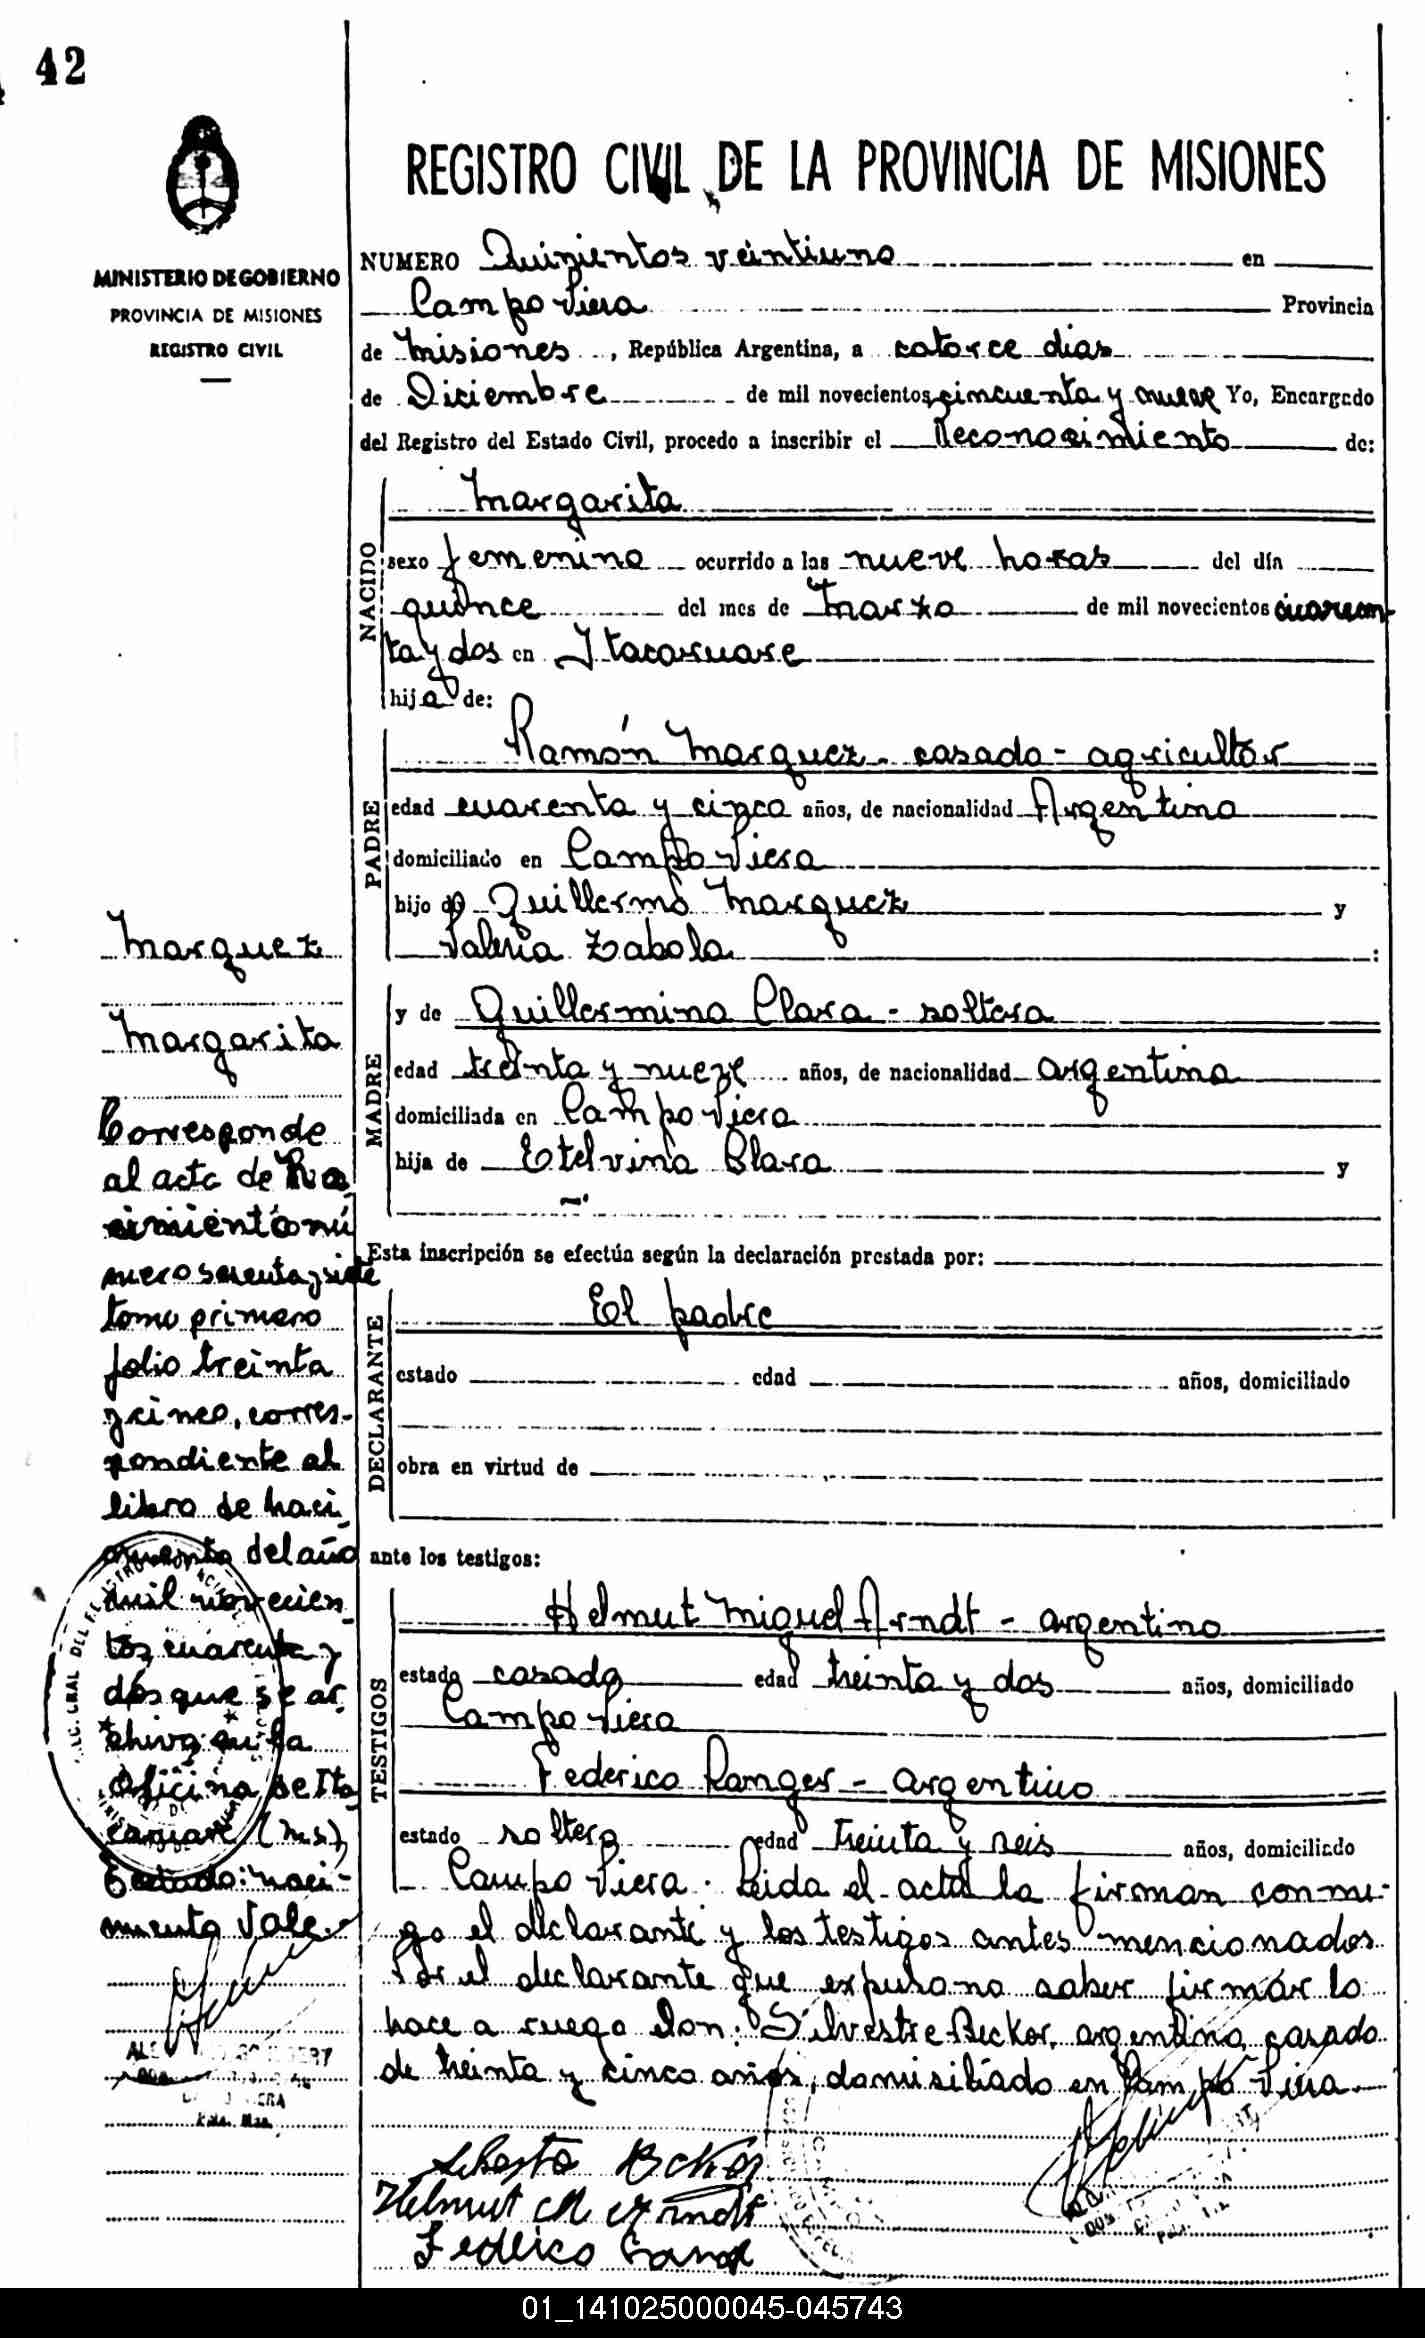 42
REGISTRO CIVIL DE LA PROVINCIA DE MISIONES
MINISTERIO DE GOBIERNO
PROVINCIA DE MISIONES
REGISTRO CIVIL
NUMERO Quinientos veintiuno en
Campo Viera Provincia
de Misiones, República Argentina, a catorce dias
de Diciembre de mil novecientos cincuenta y nueve Yo, Encargado
del Registro del Estado Civil, procedo a inscribir el Reconocimiento de:
NACIDO
Margarita
sexo femenino ocurrido a las nueve horas del día
quince del mes de Marzo de mil novecientos cuaren-
ta y dos en Itacaruare
hija de:
PADRE
Ramón Marquez - casado - agricultor
edad cuarenta y cinco años, de nacionalidad Argentina
domiciliado en Campo Viera
hijo de Guillermo Marquez y
Valeria Zabola :
MADRE
y de Guillermina Clara - soltera
edad treinta y nueve años, de nacionalidad argentina
domiciliada en Campo Viera
hija de Etelvina Clara y
Esta inscripción se efectúa según la declaración prestada por:
DECLARANTE
El padre
estado edad años, domiciliado
obra en virtud de
ante los testigos:
TESTIGOS
Helmut Miguel Arndt - argentino
estado casado edad treinta y dos años, domiciliado
Campo Viera
Federico Ranger - argentino
estado soltero edad treinta y seis años, domiciliado
Campo Viera. Leida el acta la firman conmi-
go el declarante y los testigos antes mencionados
Por el declarante que expuso no saber firmar lo
hace a ruego don: Silvestre Beckor, argentino, casado
de treinta y cinco años, domisiliado en Campo Viera
Helmut M Arndt
Federico
Marquez
Margarita
Corresponde
al acta de Na
cimiento nú
mero senenta y siete
tomo primero
folio treinta
y cinco, corres-
pondiente al
libro de naci
miento del año
mil novecien
tos cuarenta y
dos que se ar
chiva en la
Oficina de Ita
caruare (Ms.)
Testado: naci-
miento Vale.
01_141025000045-045743